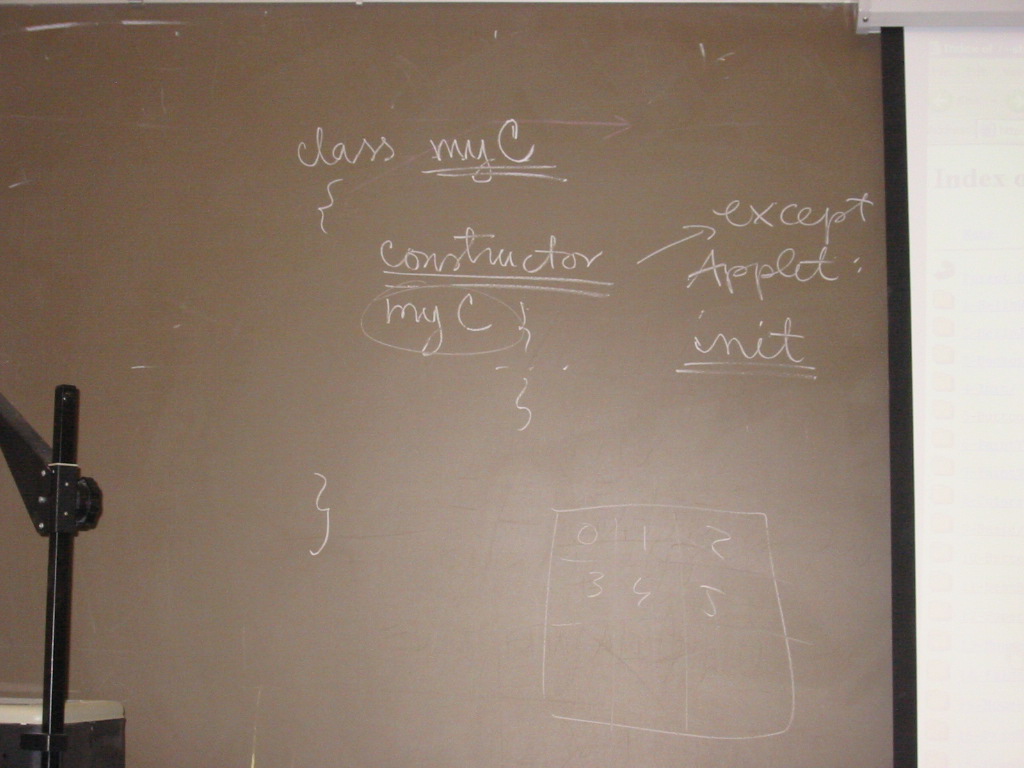 class myC
{
constructor
myC {
}
}
except
Applet:
init
0 1 2
3 4 5
Index o